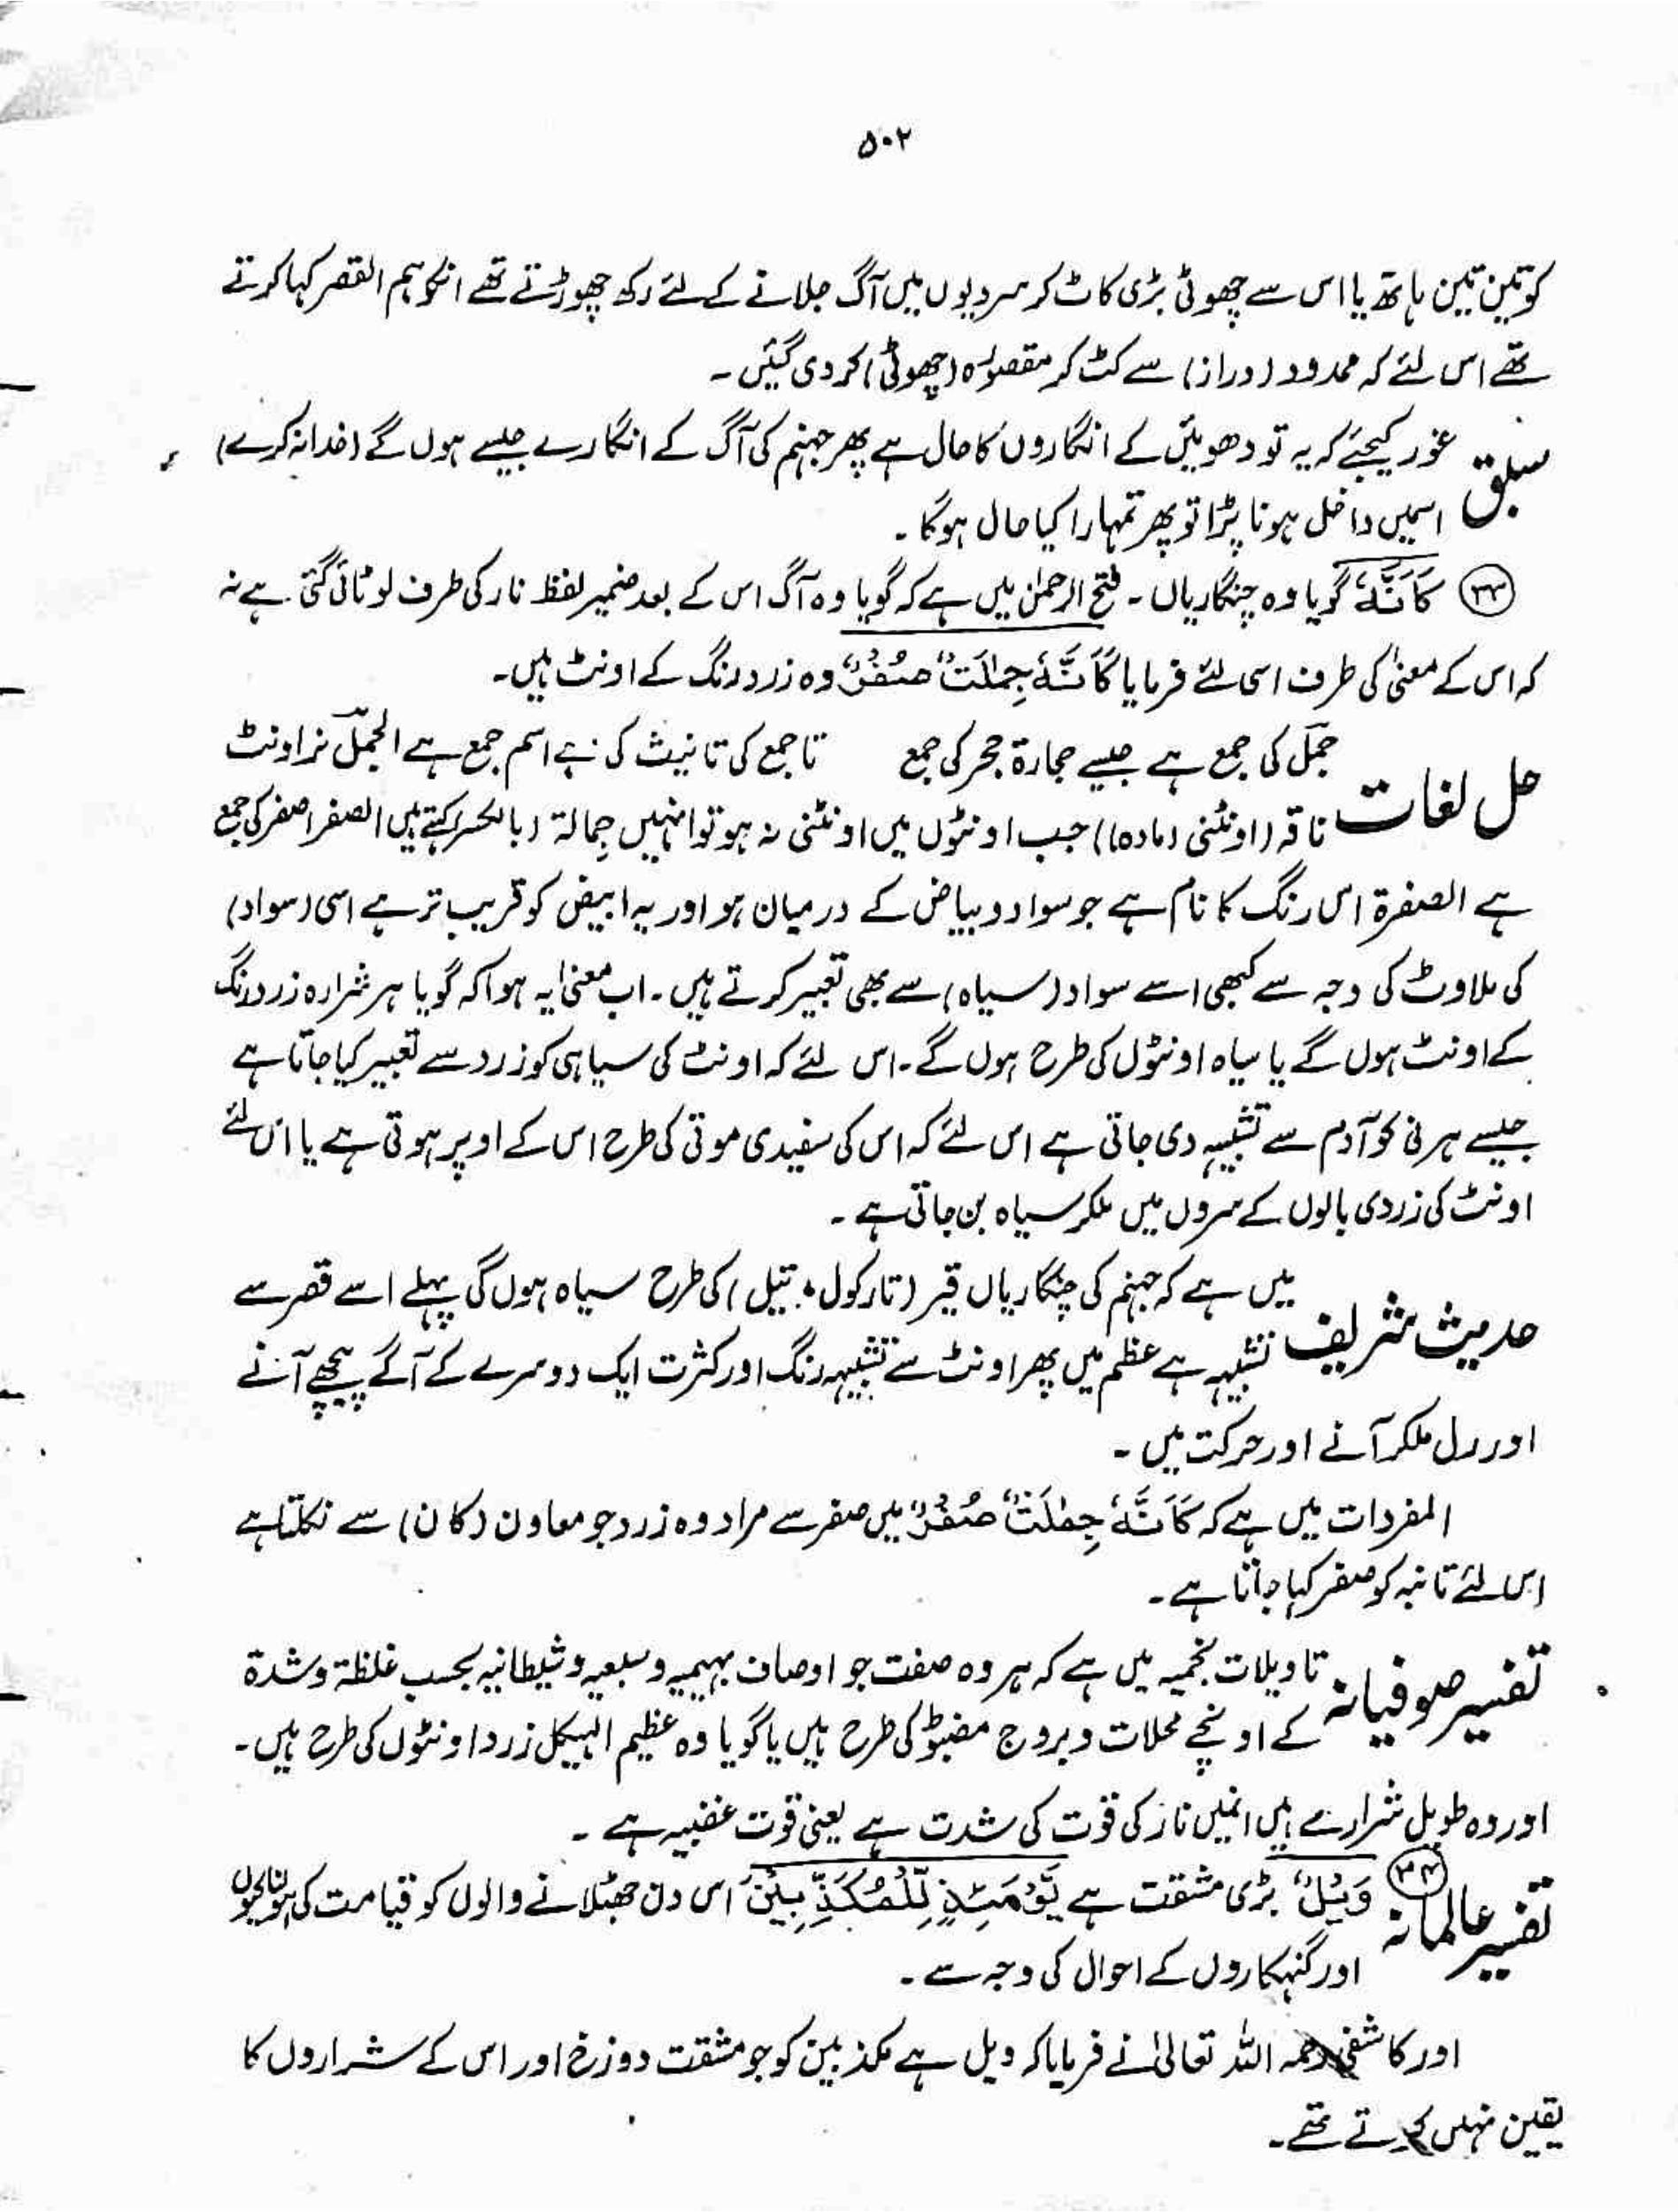 ۵۰۲
کو تین تین ہاتھ یا اس سے چھوٹی بڑی کاٹ کر سردیوں میں آگ جلانے کے لئے رکھ چھوڑتے تھے انکو ہم القصر کہا کرتے
تھے اس لئے کہ ممدود (دراز) سے کٹ کر مقصورہ (چھوٹی) کر دی گئیں ۔
سبق غور کیجئے کہ یہ تو دھوئیں کے انگاروں کا حال ہے پھر جہنم کی آگ کے انگارے جیسے ہوں گے (خدا نہ کرے)
اسمیں داخل ہونا پڑا تو پھر تمہارا کیا حال ہوگا ۔
(۳۳) كَاَنَّهٗ گویا وہ چنگاریاں ۔ فتح الرحمٰن میں ہے کہ گویا وہ آگ اس کے بعد ضمیر لفظ نار کی طرف لوٹائی گئی ہے نہ
کہ اس کے معنیٰ کی طرف اسی لئے فرمایا كَاَنَّهٗ جِمٰلَتٌ صُفْرٌ وہ زرد رنگ کے اونٹ ہیں۔
حل لغات جمل کی جمع ہے جیسے حجارۃ حجر کی جمع تا جمع کی تانیث کی ہے اسم جمع ہے الجمل نر اونٹ
ناقہ (اونٹنی (مادہ)) جب اونٹوں میں اونٹنی نہ ہو تو انہیں جِمالۃ (بالکسر) کہتے ہیں الصفر اصفر کی جمع
ہے الصفرۃ اس رنگ کا نام ہے جو سواد و بیاض کے درمیان ہو اور یہ ابیض کو قریب تر ہے اسی (سواد)
کی ملاوٹ کی وجہ سے کبھی اسے سواد (سیاہ) سے بھی تعبیر کرتے ہیں ۔ اب معنیٰ یہ ہوا کہ گویا ہر شرارہ زرد رنگ
کے اونٹ ہوں گے یا سیاہ اونٹوں کی طرح ہوں گے ۔ اس لئے کہ اونٹ کی سیاہی کو زرد سے تعبیر کیا جاتا ہے
جیسے ہرنی کو آدم سے تشبیہ دی جاتی ہے اس لئے کہ اس کی سفیدی موتی کی طرح اس کے اوپر ہوتی ہے یا اس لئے
اونٹ کی زردی بالوں کے سروں میں ملکر سیاہ بن جاتی ہے ۔
حدیث شریف میں ہے کہ جہنم کی چنگاریاں قیر (تارکول، تیل) کی طرح سیاہ ہوں گی پہلے اسے قصر سے
تشبیہ ہے عظم میں پھر اونٹ سے تشبیہ رنگ اور کثرت ایک دوسرے کے آگے پیچھے آنے
اور رل ملکر آنے اور حرکت میں ۔
المفردات میں ہے کہ كَاَنَّهٗ جِمٰلَتٌ صُفْرٌ میں صفر سے مراد وہ زرد جو معاون (کان) سے نکلتا ہے
اس لئے تانبہ کو صفر کہا جاتا ہے ۔
تفسیر صوفیانہ تاویلات نجمیہ میں ہے کہ ہر وہ صفت جو اوصاف بہیمیہ و سبعیہ و شیطانیہ بحسب غلظۃ و شدۃ
کے اونچے محلات و بروج مضبوط کی طرح ہیں یا گویا وہ عظیم الہیکل زرد اونٹوں کی طرح ہیں ۔
اور وہ طویل شرارے ہیں انمیں نار کی قوت کی شدت ہے یعنی قوت غضبیہ ہے ۔
تفسیر عالمانہ (۳۴) وَيْلٌ بڑی مشقت ہے يَّوْمَئِذٍ لِّلْمُكَذِّبِيْنَ اس دن جھٹلانے والوں کو قیامت کی ہولناکیوں
اور گنہکاروں کے احوال کی وجہ سے ۔
اور کاشفی رحمہ اللہ تعالیٰ نے فرمایا کہ ویل ہے مکذبین کو جو مشقت دوزخ اور اس کے شراروں کا
یقین نہیں کرتے تھے ۔